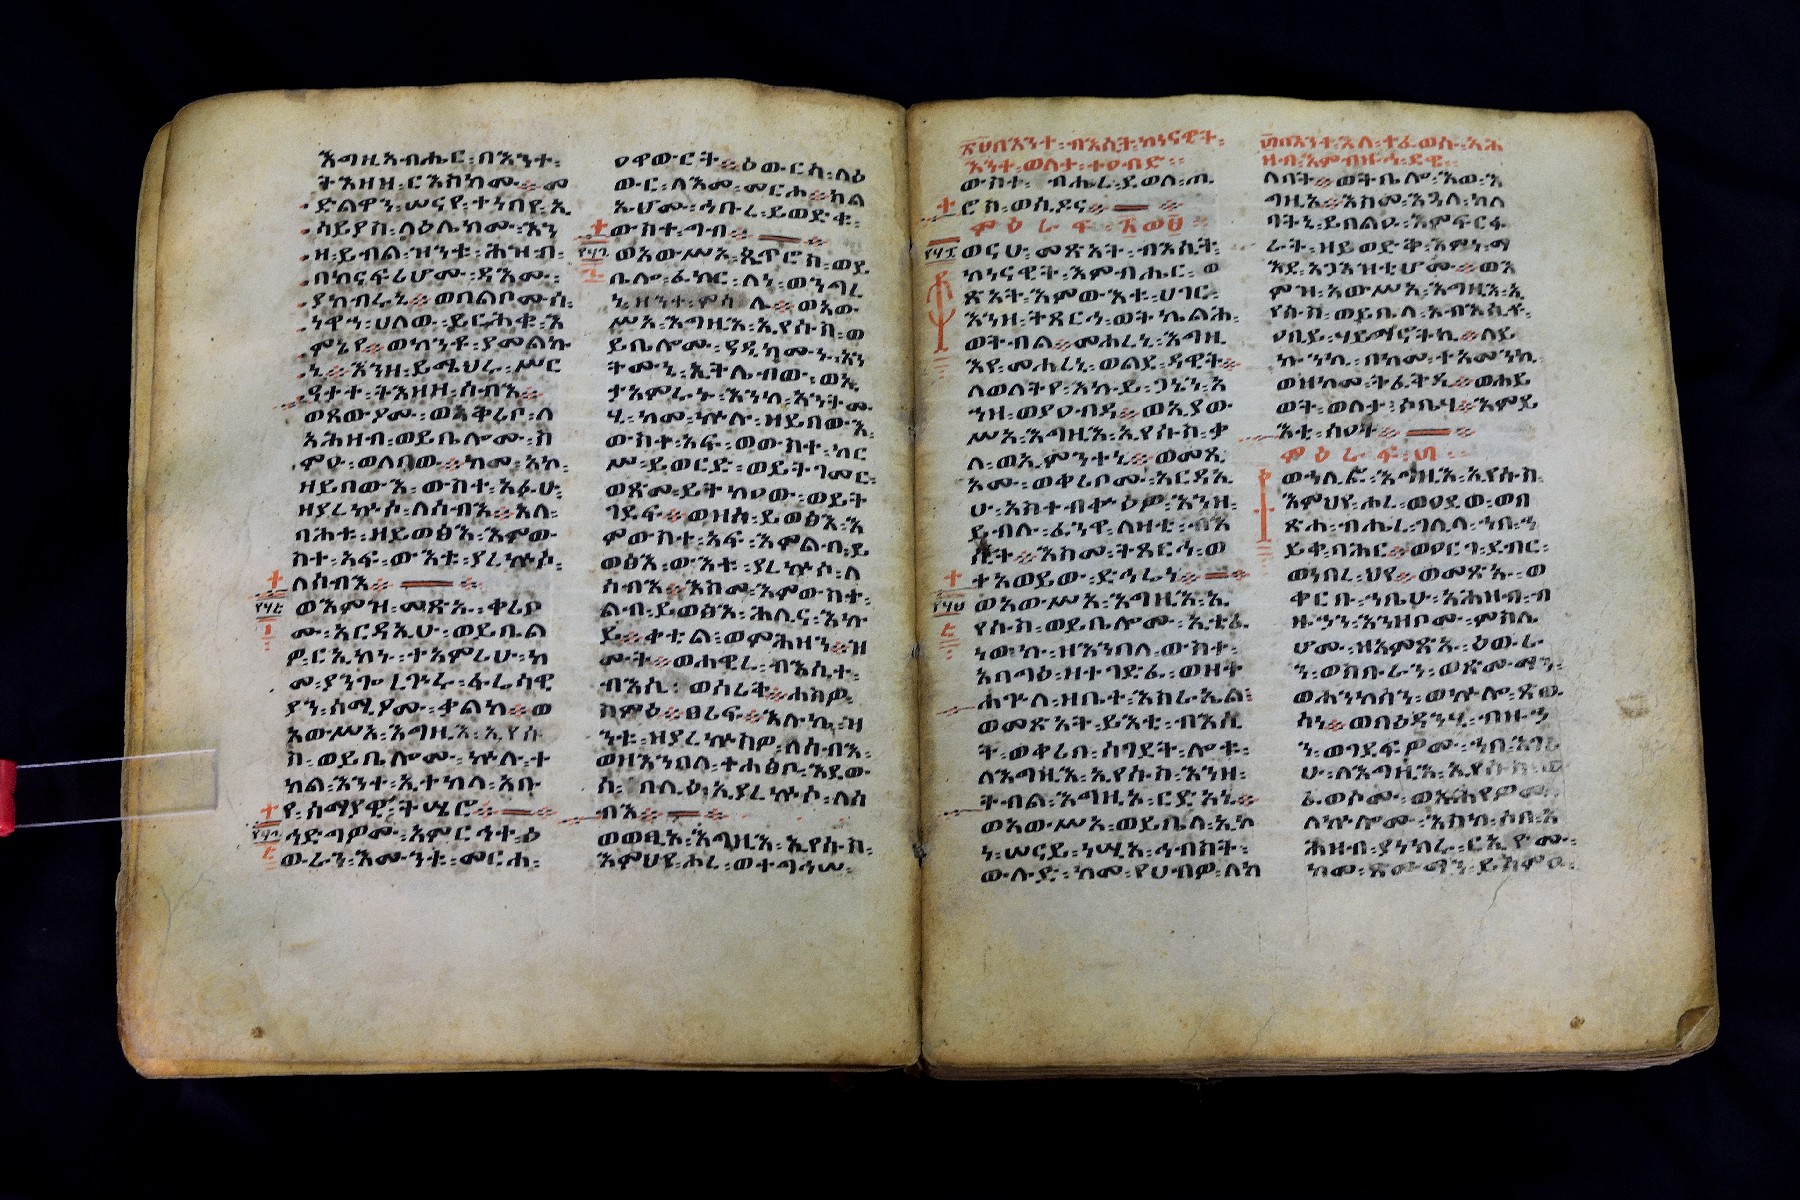 እግዚአብሔር፡በእንተ፡
ድልዋን፡ሠናየ፡ተነበየ፡ኢ
ሳይያስ፡ላዕሌክሙ፡እን
ዘ፡ይብል፡ዝንቱ፡ሕዝብ፡
በከናፍሪሆሙ፡ዳእሙ፡
ያከብሩኒ፨ወበልቦሙሰ፡
ነዋኅ፡ሀለው፡ይርሕቁ፡እ
ምኔየ፨ወከንቶ፡ያመልኩ
ኒ፨እንዘ፡ይሜህሩ፡ሥር
ዓተተ፡ትእዘዘ፡ሰብእ፨
ወጸውዖሙ፡ወአቅረቦ፡ለ
አሕዛብ፡ወይቤሎሙ፡ስ
ምዑ፡ወለብው፨ከመ፡አኮ፡
ዘይበውእ፡ውስተ፡አፉሁ፡
ዘያረኵሶ፡ለሰብእ፨አላ፡
ባሕቱ፡ዘይወፅእ፡እምው
ስተ፡አፍ፡ውእቱ፡ያረኵሶ፡
ለሰብእ፨
ወእምዝ፡መጽኡ፡ቀሪቦ
ሙ፡አርዳኢሁ፡ወይቤል
ዎ፡ርኢከኑ፡ተአምሪሁ፡ከ
መ፡ያንጐረጕሩ፡ፈሪሳዊ
ያን፡ሰሚዖሙ፡ቃልከ፨ወ
አውሥአ፡እግዚእ፡ኢየሱ
ስ፡ወይቤሎሙ፡ኵሉ፡ተ
ክል፡እንተ፡ኢተከላ፡አቡ
የ፡ሰማያዊ፡ትሤሮ፨
ኅድግዎሙ፡እምርኅተ፡ዕ
ውራን፡እሙንቱ፡መርሐ፡
ዕዋውርት፨ዕውርሰ፡ለዕ
ውር፡ለእመ፡መርሖ፨ክል
ኤሆሙ፡ኅቡረ፡ይወድቁ፡
ውስተ፡ግብ፨
ወአውሥአ፡ጴጥሮስ፡ወይ
ቤሎ፡ፈክር፡ለነ፡ወንግረ
ሥአ፡እግዚእ፡ኢየሱስ፡ወ
ይቤሎሙ፡ዓዲክሙኑ፡አን
ትሙኒ፡ኢትሌብው፡ወኢ
ታአምሩኑ፡እንከ፡አንትሙ
ሂ፡ከመ፡ኵሉ፡ዘይበውእ፡
ውስተ፡አፍ፡ወውስተ፡ከር
ሥ፡ይወርድ፡ወይትገመር፡
ወጽመ፡ይትከዐው፡ወይት
ገደፍ፨ወዘሰ፡ይወፅእ፡እ
ምውስተ፡አፍ፡እምልብ፡ይ
ወፅእ፡ውእቱ፡ያረኵሶ፡ለ
ሰብእ፨እስመ፡እምውስተ፡
ልብ፡ይወፅእ፡ሕሊና፡እኩ
ይ፨ቀቲል፡ወምሕዘን፨ዝ
ሙት፨ወሐዊረ፡ብእሲተ፡
ብእሲ፡ወሰሪት፨ሐሰው፡
ስምዕ፨ፀሪፍ፨እሉኬ፡እ
ንቱ፡ዘያረኵስዎ፡ለሰብእ፡
ወዘእንበለ፡ተሐፅቦ፡እደው
ሰ፡በሊዕ፡ኢያረኵሶ፡ለሰ
ብእ፨
ወወፂኦ፡እግዚእ፡ኢየሱስ፡
እምህየ፡ሐረ፡ወተግኅሠ፡
፳፱በእንተ፡ብእሲት፡ከነናዊት፡
እንተ፡ወለታ፡ተዐብድ፡
ውስተ፡ብሔረ፡ጢ
ሮስ፡ወሲዶና፨
ምዕራፍ፡
ወናሁ፡መጽአት፡ብእሲት፡
ከነናዊት፡እምብሔር፡ወ
ጽአት፡እምውእቱ፡ሀገር፡
እንዘ፡ትጸርኅ፡ወትኬልሕ፡
ወትብል፨መሐረኒ፡እግዚ
እየ፡መሐረኒ፡ወልደ፡ዳዊት፨
ለወለትየ፡እኩይ፡ጋኔን፡አ
ኀዛ፡ወያዐብዳ፨ወኢያው
ሥአ፡እግዚእ፡ኢየሱስ፡ቃ
ለ፡ወኢምንተኒ፨ወመጺ
አሙ፡ወቀሪቦሙ፡አርዳኢ
ሁ፡አስተብቍዕዎ፡እንዘ፡
ይብሉ፡ፈንዋ፡ለዛቲ፡ብእ
ሲት፨እስመ፡ትጸርኅ፡ወ
ተአወይው፡ድኅሬነ፨
ወአውሥአ፡እግዚእ፡ኢ
የሱስ፡ወይቤሎሙ፡ኢተፈ
ነውኩ፡ዘእንበለ፡ውስተ፡
አባግዕ፡ዘተገድፈ፡ወዘተ
ሐጕለ፡ዘቤተ፡እስራኤል፡
ወመጽአት፡ይእቲ፡ብእሲ
ት፡ወቀሪባ፡ሰገደት፡ሎቱ፡
ለእግዚእ፡ኢየሱስ፡እንዘ፡
ትብል፡እግዚኦ፡ርድአኒ፨
ወአውሥአ፡ወይቤላ፡ኢኮ
ነ፡ሠናይ፡ነሢአ፡ኅብስተ፡
ውሉድ፡ከመ፡የሀብዎ፡ለከ
በእንተ፡እለ፡ተፈወሱ፡አሕ
ዛብ፡እምብዙኅ፡ደዌ፡
ለባት፨ወትቤሎ፡እወ፡እ
ግዚኦ፨እስመ፡እንለ፡ከለ
ባትኒ፡ይበልዑ፡እምፍርፋ
ራት፡ዘይወድቅ፡እምነ፡ማ
እደ፡አጋእዝቲሆሙ፨ወእ
ምዝ፡አውሥአ፡እግዚእ፡ኢ
የሱስ፡ወይቤላ፡ኦብእሲቶ፡
ዐቢይ፡ሃይማኖትኪ፨ለይ
ኩንኪ፡በከመ፡ተአመንኪ፡
ወዘከመ፡ትፈትዲ፨ወሐይ
ወት፡ወለታ፡ሶቤሃ፨እምይ
እቲ፡ሰዐት፨
ምዕራፍ፡
ወኀሊፎ፡እግዚእ፡ኢየሱስ፡
እምህየ፡ሐረ፡ወዐደወ፡ወበ
ጽሐ፡ብሔረ፡ገሊላ፡ኀበ፡ኀ
ይቀ፡ባሕር፨ወዐርገ፡ደብር፡
ወነበረ፡ህየ፨ወመጽኡ፡ወ
ቀርቡ፡ኀቤሁ፡አሕዛብ፡ብ
ዙኃን፡እንዘቦሙ፡ምስሌ
ሆሙ፡ዘአምጽኡ፡ዕውራ
ነ፡ወስቡራነ፡ወጽሙማነ፡
ወሕንካሳነ፡ወኵሎ፡ጽዉ
ሳነ፨ወበዕዳንሂ፡ብዙኃ
ነ፡ወገደፍዎሙ፡ኀበ፡እገሪ
ሁ፡ለእግዚእ፡ኢየሱስ፡ወ
ፈወሶሙ፡ወአሕየዎሙ፡
ለኵሎሙ፡እስከ፡ሶበ፡አ
ሕዛብ፡ያነክሩ፡ርእዮሙ፡
ከመ፡ጽሙማን፡ይሰምዑ፡